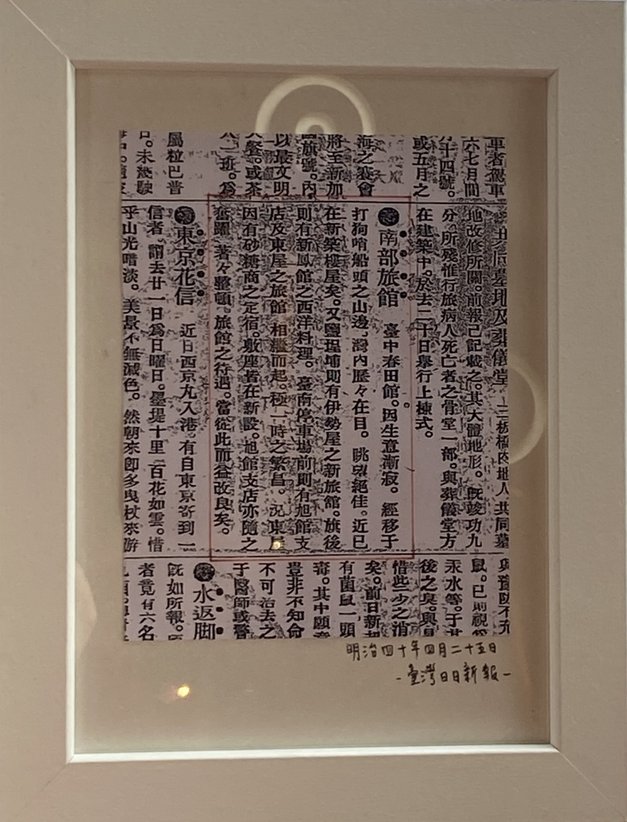 車者駕車
六七月間
十四號。
或五月之
海之襄會
將至新加
旗號。內
以最文明
堅。或茶
一班。爲
屬粒巴普
。未幾歇
墓地及葬儀堂 三板橋內地人共同墓
地改修所關。前報已記載之。其大體地形。既竣功九
分。所殘惟行旅病人死亡者之骨堂一部。與葬儀堂方
在建築中。於去二十日舉行上棟式。
南部旅館 臺中春田館。因生意漸寂。經移于
打狗哨船頭之山邊。灣內歷々在目。眺望絕佳。近已
在新築樓屋矣。又鹽埕埔則有伊勢屋之新旅館。旗後
則有新鳳館之西洋料理。臺南停車場前則有旭館支
店及東屋之旅館。相繼而起。極一時之繁昌。況東屋
因有砂糖商之定宿。敷座者在新設。旭館支店亦隨之
奮躍。著々整頓。旅館之待遇。當從此而益改良矣。
東京花信 近日西京丸入港。有自東京寄到一
信者。謂去廿一日爲日曜日。墨堤十里。百花如雲。惜
乎山光暗淡。美景不無減色。然朝來卽多曳杖來游
與豫防不充
鼠。已剖視
汞水等。于其
後之臭。與
惜些少之消
矣。前日新起
有菌鼠一頭
毒。其中願
豈非不知命
不可治去之
于醫師或警
水返脚
既如所報。
者竟有六名
明治四十年四月二十五日
-臺灣日日新報-